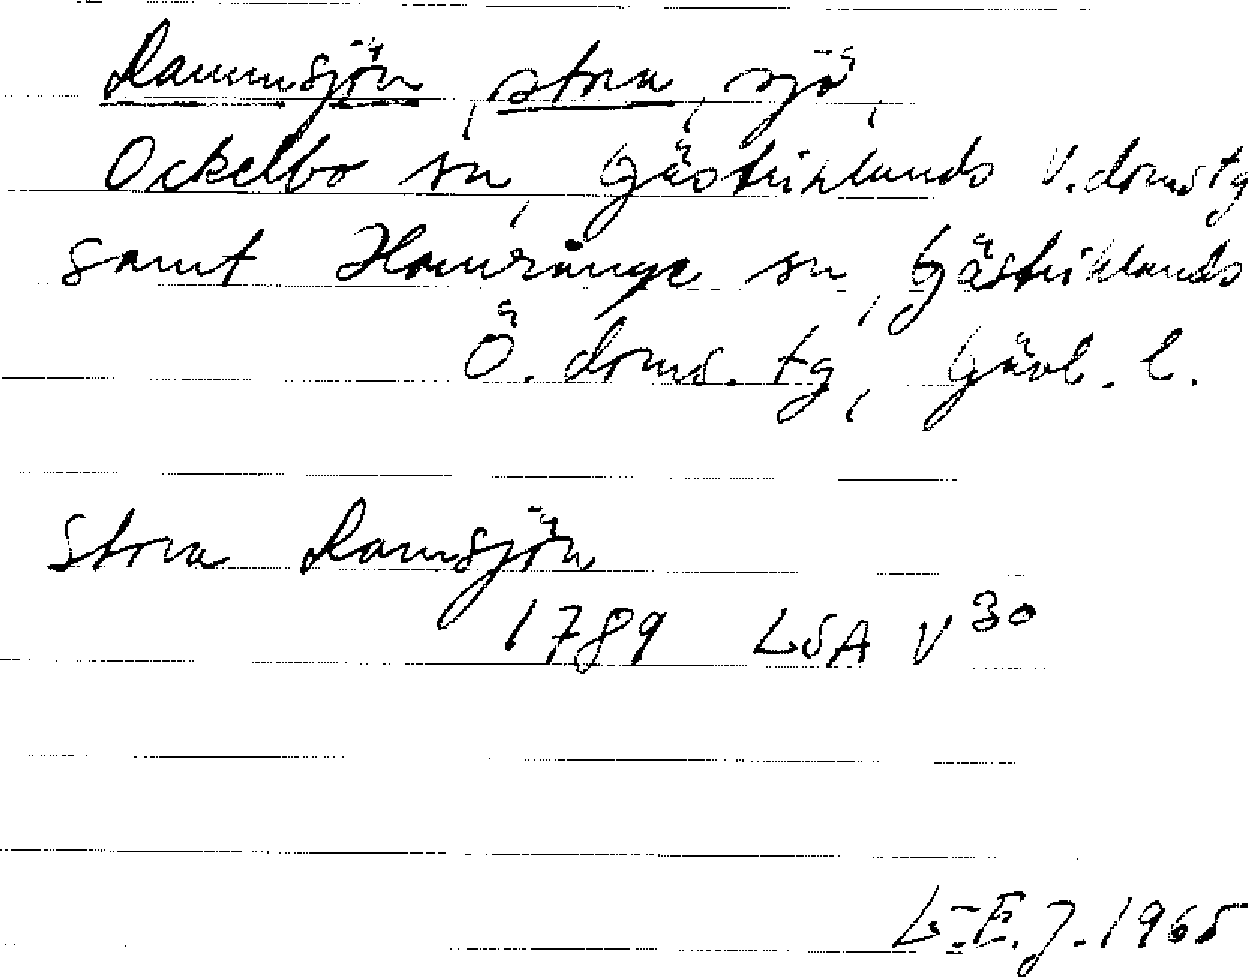 Rammsjön, stora, sjö,
Ockelbo sn, Gästriklands V. doms tg
samt Hamrånge sn, Gästriklands
Ö. doms. tg, Gävl. l.
Stora Ramsjön
1789 LSA V 30
L-E.J. 1965